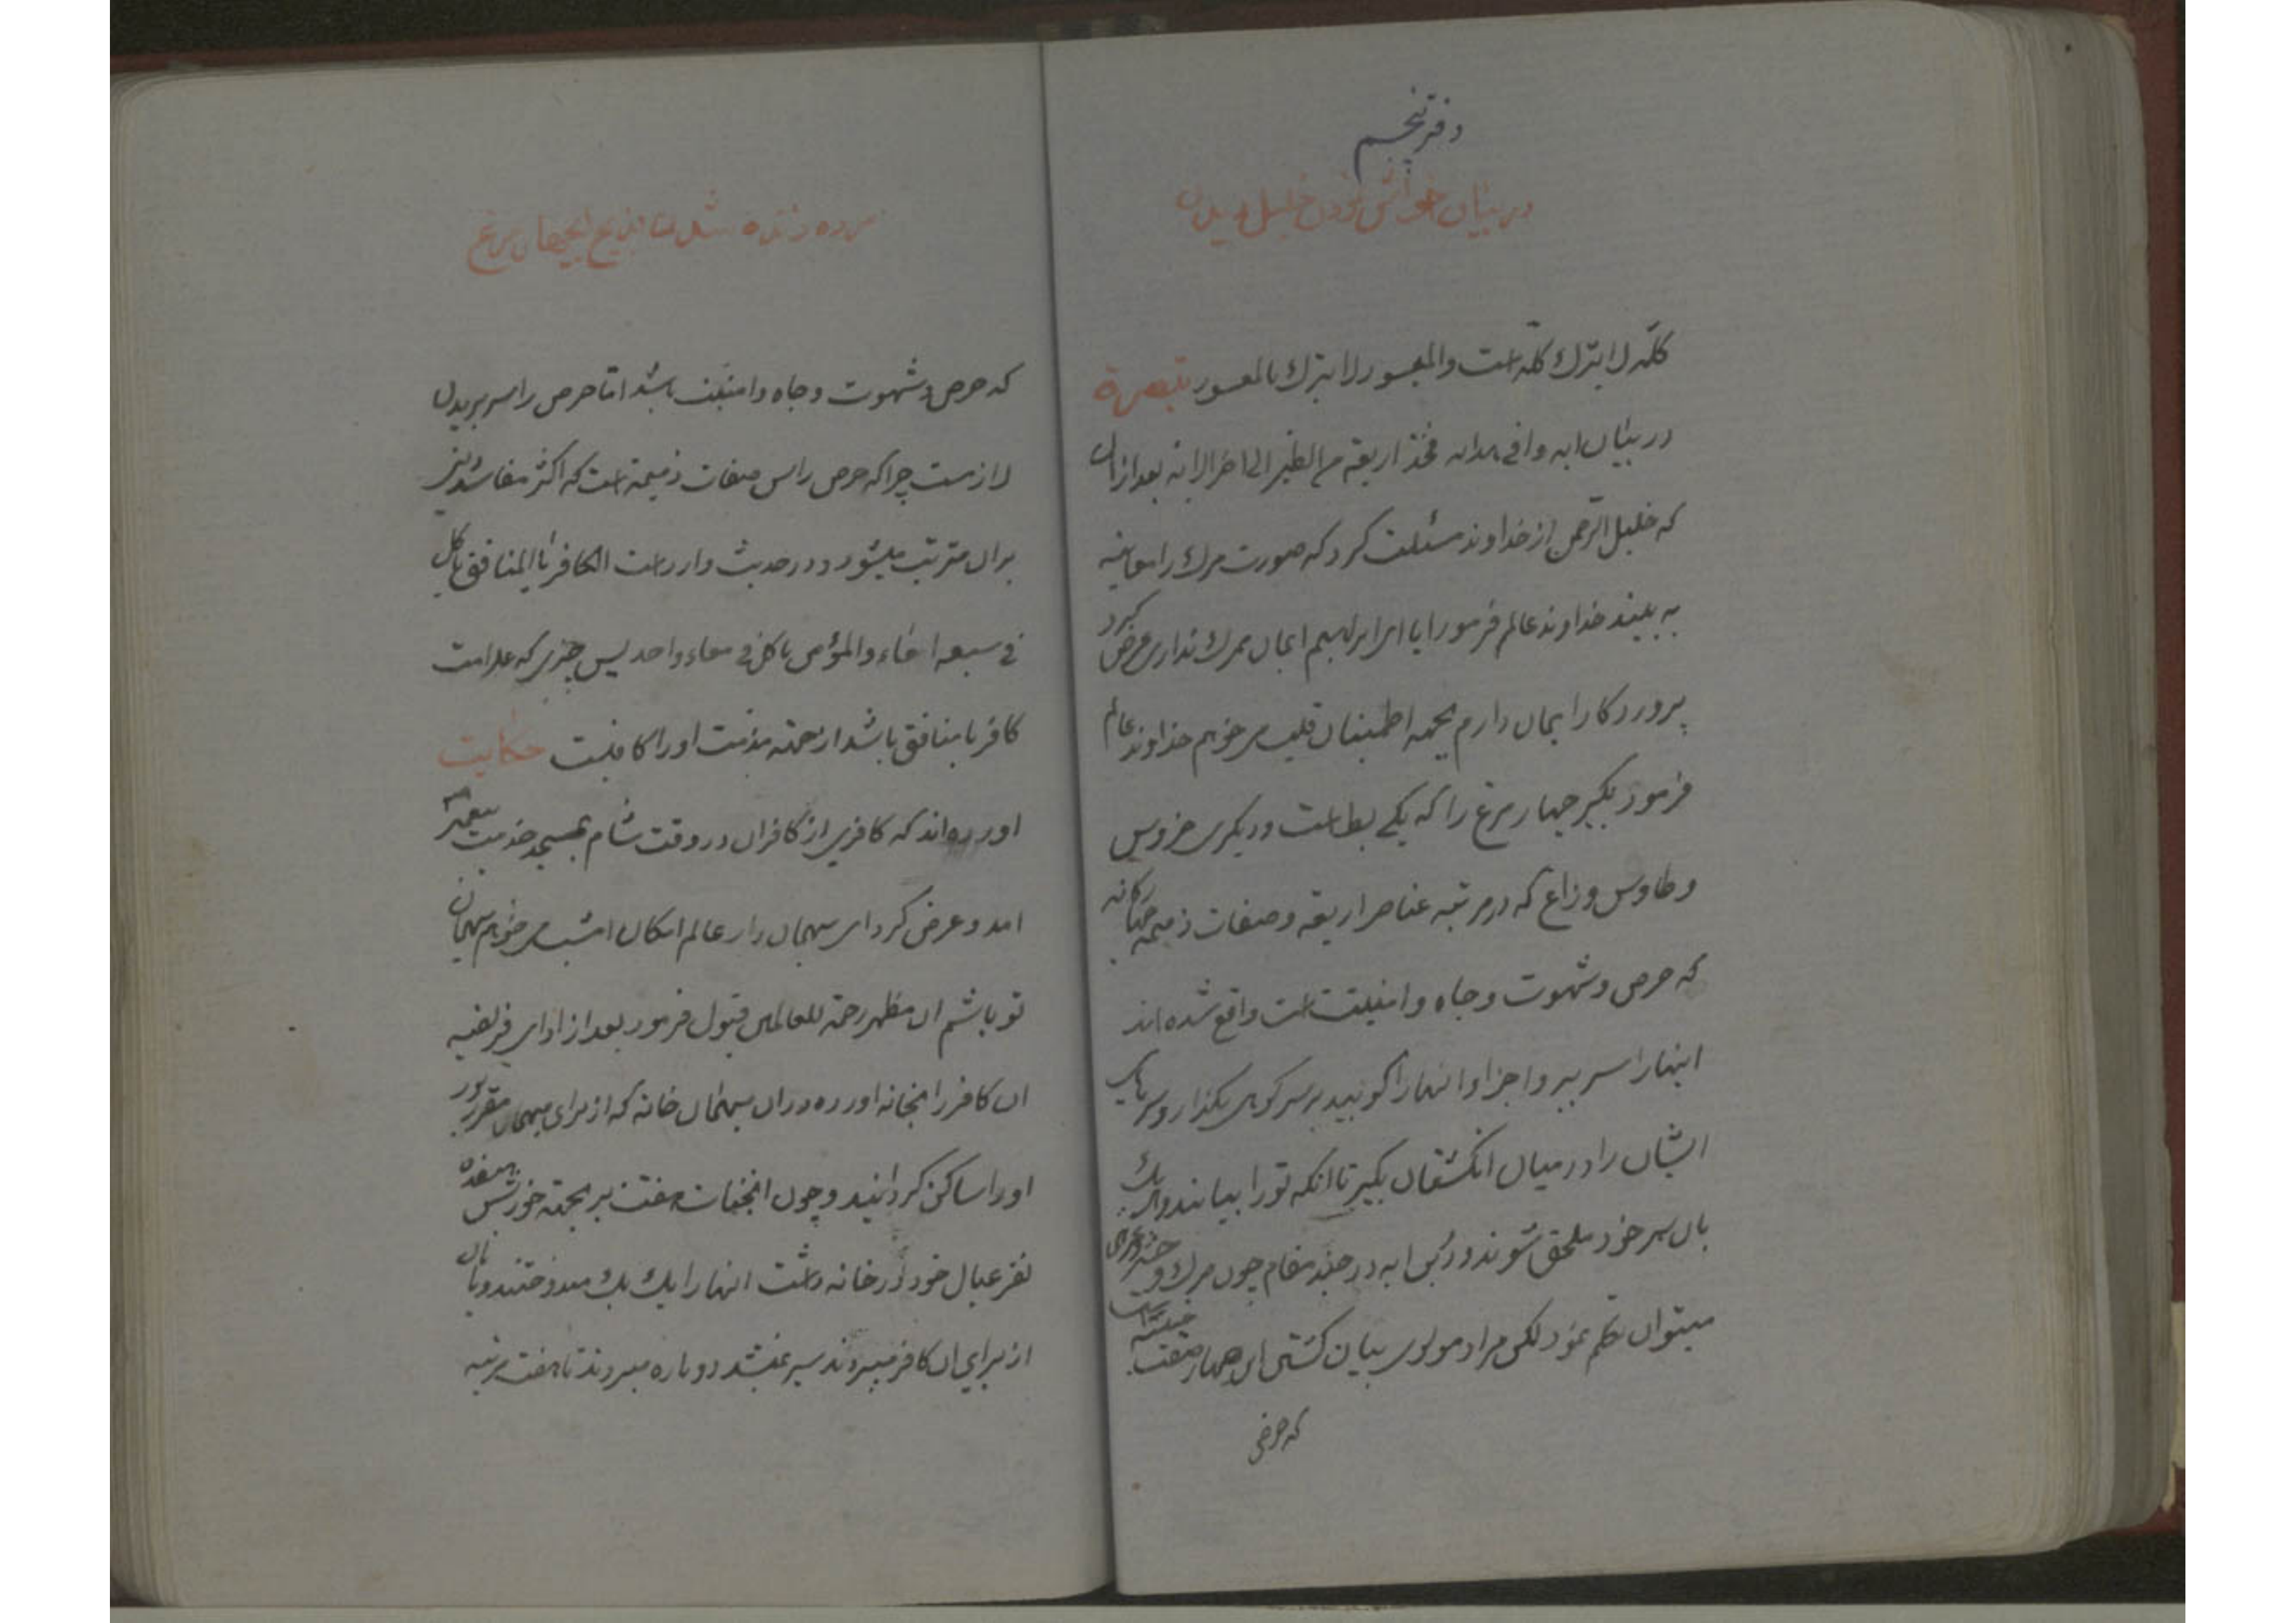 دفتر پنجم
در بیان خواهش نمودن خلیل دیدن
کلّه لا یترك کلّه است والمیسور لا یترك بالمعسور تبصرة
در بیان ایه وافی هدایه فخذ اربعة من الطیر الی اخر الایة بعد از ان
که خلیل الرّحمن از خداوند مسئلت کرد که صورت مرك را معاینه
به بیند خداوند عالم فرمود ایا ای ابراهیم ایمان بمرك نداری عرض کرد
پروردکارا ایمان دارم بجهه اطمینان قلب می خواهم خداوند عالم
فرمود بکیر چهار مرغ را که یکی بط است و دیکری خروس
و طاوس و زاغ که در مرتبه عناصر اربعه و صفات ذمیمه چهارکانه
که حرص و شهوت و جاه و امنیت است واقع شده اند
اینها را سر ببر و اجزاو انها را کوبید بر سر کوهی بکذار و سرهای
ایشان را در میان انکشتان بکیر تا انکه تو را بیایند و هر یك
بان سر خود ملحق شوند و در این ایه در چند مقام چون مرك و حشر و
میتوان تکلم نمود لکن مراد مولوی بیان کشتن این چهار صفت خبیثه است
که حرص
مرده زنده شدن بذبح چهار مرغ
که حرص و شهوت و جاه و امنیت باشد امّا حرص را سر بریدن
لازمست چرا که حرص راس صفات ذمیمه است که اکثر مفاسد دینی
بران مترتب میشود و در حدیث وارد است الکافر یا المنافق یاکل
فی سبعه امعاء والمؤمن یاکل فی معاء واحد پس چیزی که علامت
کافر یا منافق باشد از جهته مذمت او را کافیست حکایت
اورده اند که کافری از کافران در وقت شام بمسجد خدمت پیغمبر
امد و عرض کرد ای میهمان دار عالم امکان امشب می خواهم میهمان
تو باشم ان مظهر رحمة للعالمین قبول فرمود بعد از ادای فریضه
ان کافر را بخانه اورده در ان میهمان خانه که از برای میهمان مقرر بود
او را ساکن کردانیید و چون انجناب هفت بز بجهته خورش هفده
نفر عیال خود در خانه داشت انها را یك یك میدوختند و بانان
از برای ان کافر میبردند سیر نمیشد دوباره میبردند تا هفت مرتبه